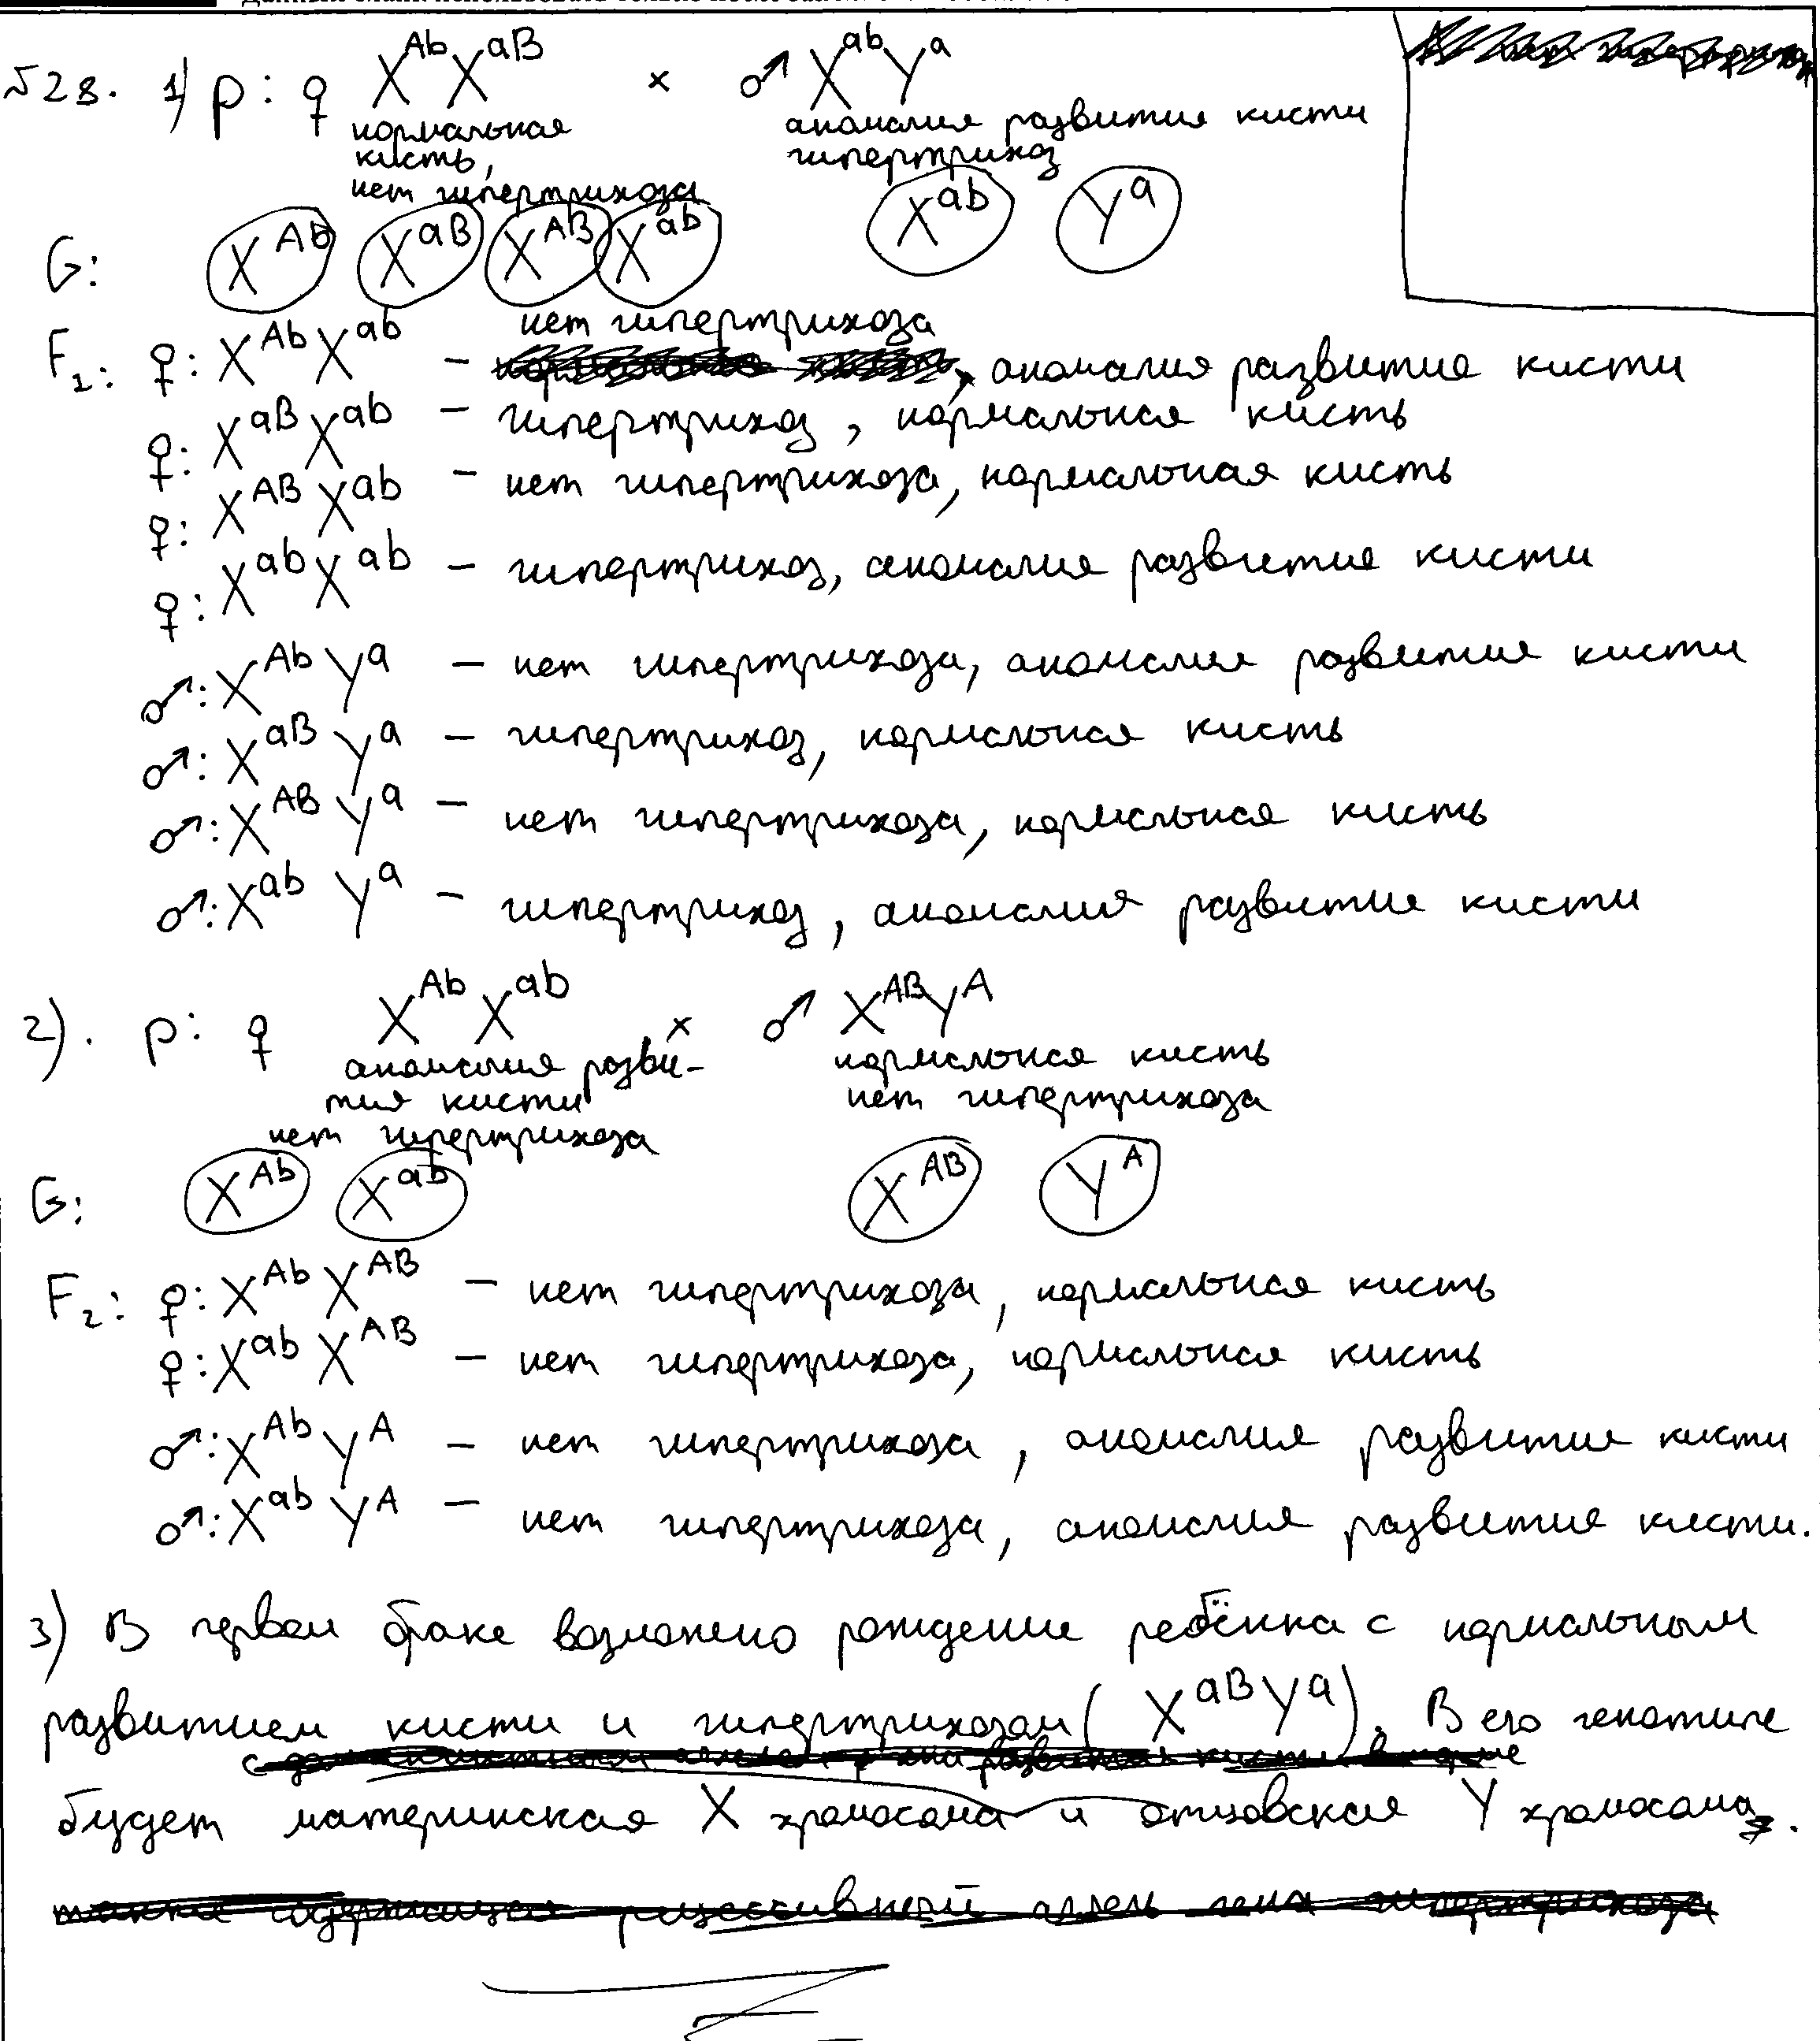 №28. 1) P: ♀ X^Ab X^aB × ♂ X^ab Y^a
нормальная кисть, нет гипертрихоза
аномалия развития кисти гипертрихоз
G: X^Ab X^aB X^AB X^ab X^ab Y^a
нет гипертрихоза
F1: ♀: X^Ab X^ab – , аномалия развитие кисти
♀: X^aB X^ab – гипертрихоз, нормальная кисть
♀: X^AB X^ab – нет гипертрихоза, нормальная кисть
♀: X^ab X^ab – гипертрихоз, аномалия развитие кисти
♂: X^Ab Y^a – нет гипертрихоза, аномалия развитие кисти
♂: X^aB Y^a – гипертрихоз, нормальная кисть
♂: X^AB Y^a – нет гипертрихоза, нормальная кисть
♂: X^ab Y^a – гипертрихоз, аномалия развитие кисти
2). P: ♀ X^Ab X^ab × ♂ X^AB Y^A
аномалия разви-
тия кисти
нет гипертрихоза
нормальная кисть
нет гипертрихоза
G: X^Ab X^ab X^AB Y^A
F2: ♀: X^Ab X^AB – нет гипертрихоза, нормальная кисть
♀: X^ab X^AB – нет гипертрихоза, нормальная кисть
♂: X^Ab Y^A – нет гипертрихоза, аномалия развитие кисти
♂: X^ab Y^A – нет гипертрихоза, аномалия развитие кисти.
3) В первом браке возможно рождение ребёнка с нормальным
развитием кисти и гипертрихозом (X^aB Y^a). В его генотипе
будет материнская X хромосома и отцовская Y хромосома.